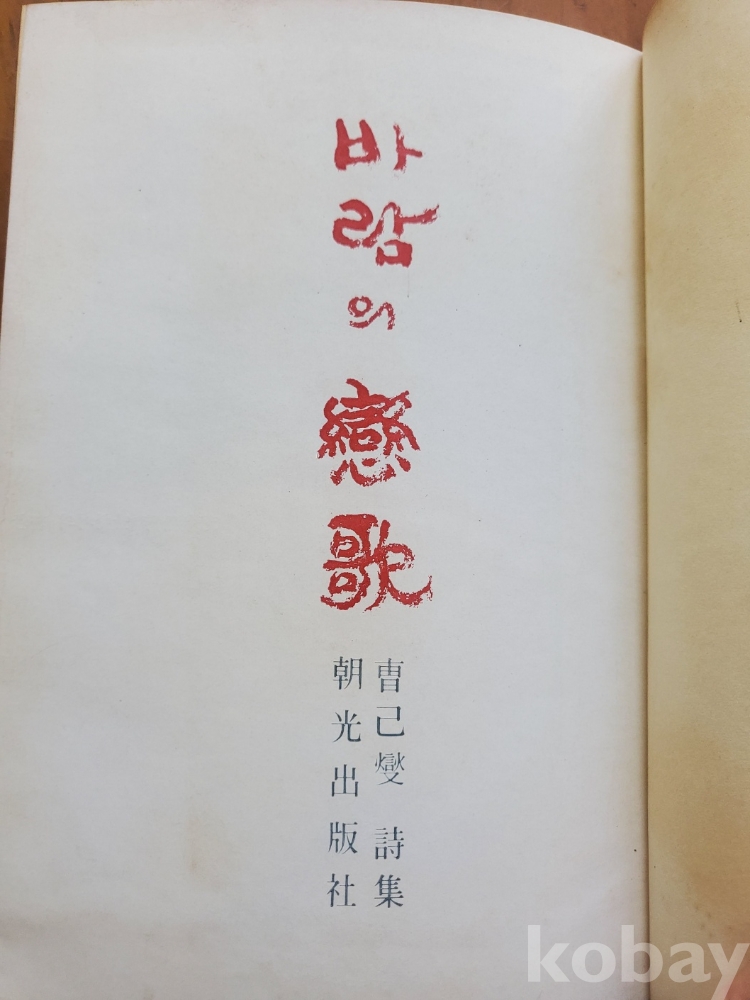 바람의 戀歌
曺己燮 詩集
朝光出版社
kobay